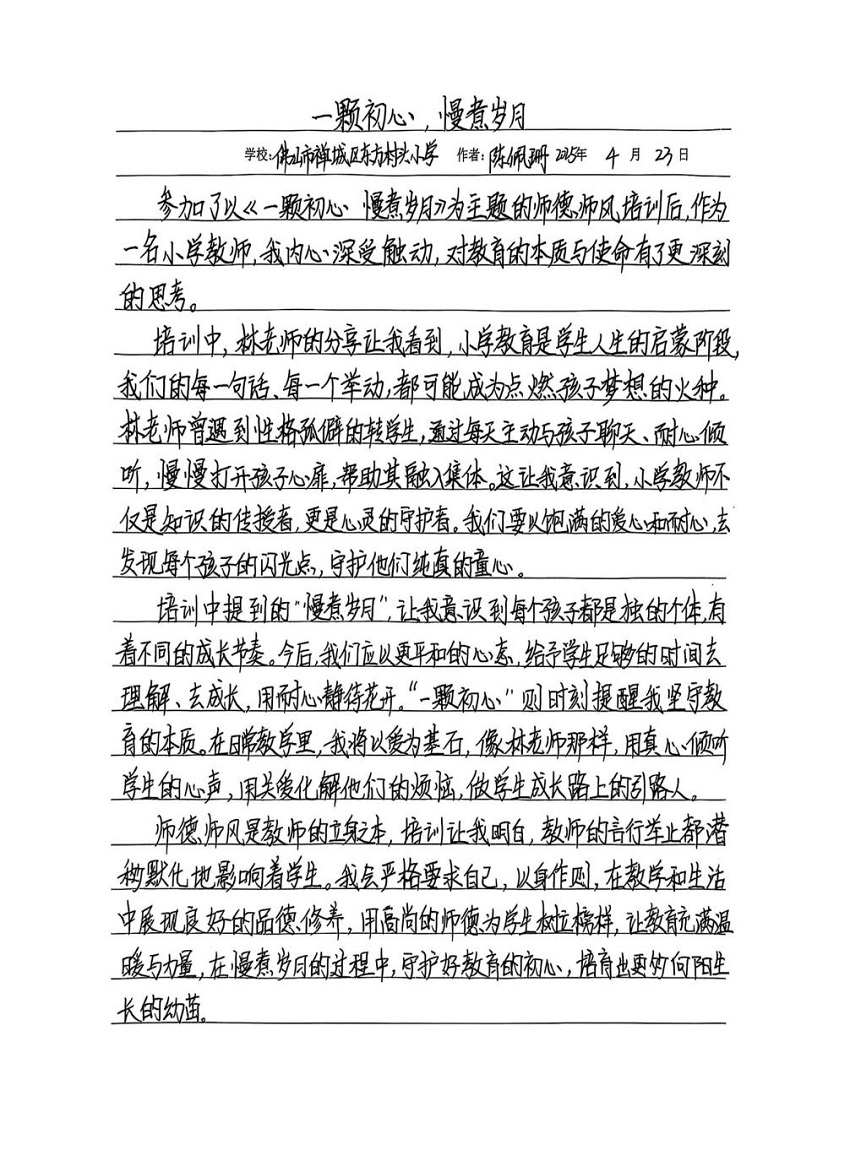 一颗初心，慢煮岁月
学校：佛山市禅城区东方村头小学 作者：陈佩珊 2025年 4 月 23 日
参加了以《一颗初心 慢煮岁月》为主题的师德师风培训后，作为
一名小学教师，我内心深受触动，对教育的本质与使命有了更深刻
的思考。
培训中，林老师的分享让我看到，小学教育是学生人生的启蒙阶段，
我们的每一句话、每一个举动，都可能成为点燃孩子梦想的火种。
林老师曾遇到性格孤僻的转学生，通过每天主动与孩子聊天、耐心倾
听，慢慢打开孩子心扉，帮助其融入集体。这让我意识到，小学教师不
仅是知识的传授者，更是心灵的守护者。我们要以饱满的爱心和耐心，去
发现每个孩子的闪光点，守护他们纯真的童心。
培训中提到的“慢煮岁月”，让我意识到每个孩子都是独的个体，有
着不同的成长节奏。今后，我们应以更平和的心态，给予学生足够的时间去
理解、去成长，用耐心静待花开。“一颗初心”则时刻提醒我坚守教
育的本质。在日常教学里，我将以爱为基石，像林老师那样，用真心倾听
学生的心声，用关爱化解他们的烦恼，做学生成长路上的引路人。
师德师风是教师的立身之本，培训让我明白，教师的言行举止都潜
移默化地影响着学生。我会严格要求自己，以身作则，在教学和生活
中展现良好的品德修养，用高尚的师德为学生树立榜样，让教育充满温
暖与力量，在慢煮岁月的过程中，守护好教育的初心，培育出更多向阳生
长的幼苗。